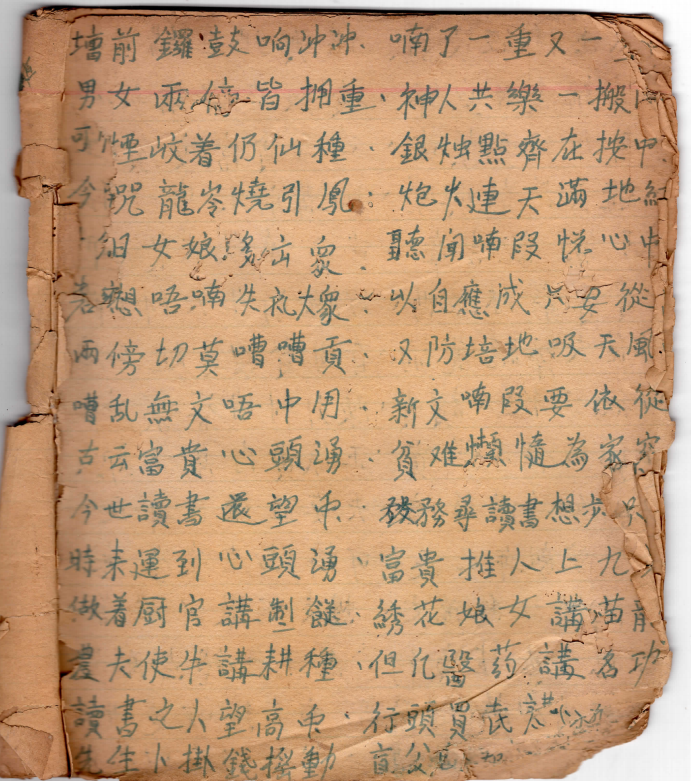 壇前鑼鼓响冲冲、喃了一重又一
男女兩傍皆拥重、神人共樂一搬
煙岐着仍仙種、銀烛點齊在按中
今咒龍岑燒引鳳、炮火連天滿地紅
女娘多立衆、聽闻喃段悦心中
若想唔喃失礼大衆、以自應成只女從
兩傍切莫嘈嘈貢、又防培地吸天風
嘈乱無文唔中用、新文喃段要依從
古云富貴心頭湧、貧难懶惰為家窮
今世讀書還望中、發務尋讀書想步
時来運到心頭湧、富貴推人上九
做着厨官講製餸、綉花娘女講描龍
農夫使牛講耕種、但凡醫药講名功
讀書之人望高中、行頭買
先生卜掛錢搬動、盲公